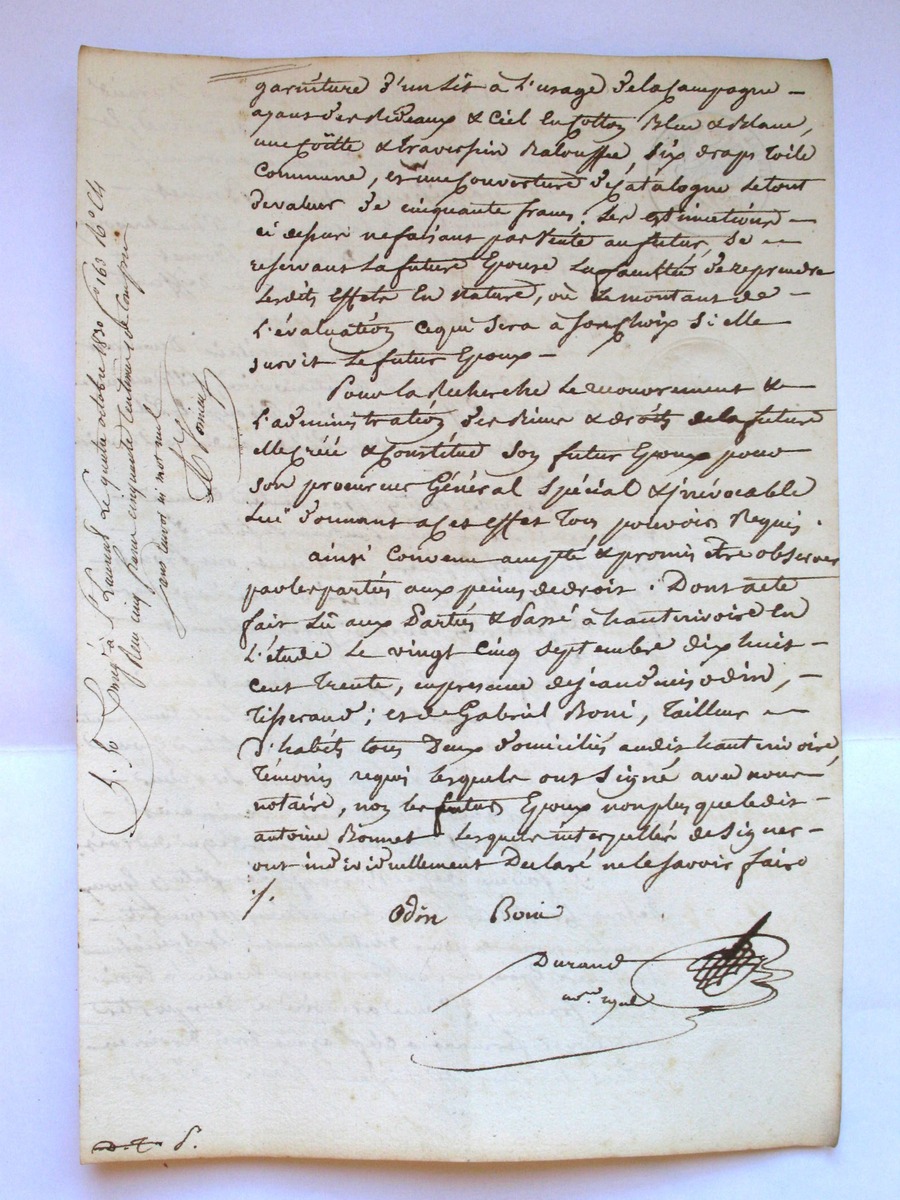 garniture d'un Lit à L'usage de la Campagne –
ayant des Rideaux & Ciel En Cotton Bleu & Blanc,
une Coëtte & traverspin Baloussée, Six draps Toile
Commune, et une Couverture de Catalogne Le tout
de valeur de cinquante francs. Les Estimations –
ci dessus ne faisant pas vente au futur, Se –
reservant La future Epouse La faculté de reprendre
Lesdits Effets En nature, où Le montant de –
L'évaluation ce qui sera à son Choix Si elle
survit Le futur Epoux –
Pour La Recherche Le recouvrement &
L'administration des Biens & droits de la future
elle Créé & Constitue Son futur Epoux pour
Son procureur Général Spécial & irrévocable
Lui donnant a Cet effet Tous pouvoirs Requis.
ainsi Convenu accepté & promis être observer
par les parties aux peines de droit. Dont acte
fait Lû aux Parties & Passé à hauterivoire En
L'étude Le vingt Cinq septembre dix huit –
cent trente, en presence de jean denis odin, –
Tisserand; et de Gabriel Boni, Tailleur –
d'habits tous Deux domiciliés audit hauterivoire,
témoins requis lesquels ont Signé avec nous
notaire, non les futurs Epoux non plus que ledit –
antoine Bonnet Lesquels interpellés de Signer –
ont individuellement Déclaré ne le Savoir faire
./.
Odin Boni
Durand
not.re royal
Enregé à St Laurent Le quatre octobre 1830 fo 163 Ro C4
Reçu cinq francs cinquante centimes de compris
sans renvoi ni mot nul
D. T. S.